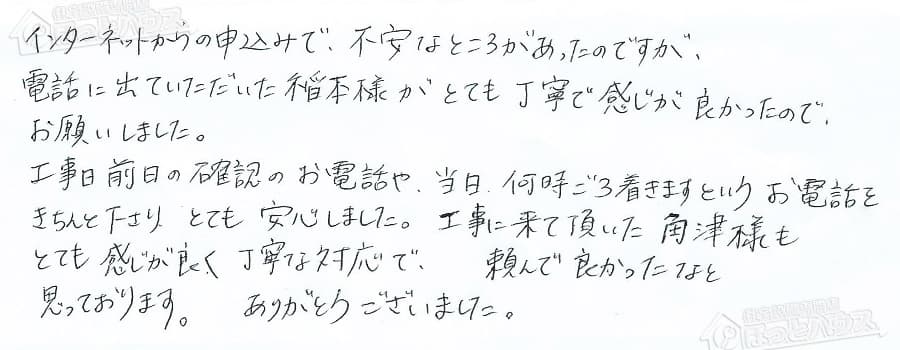 インターネットからの申込みで、不安なところがあったのですが、
電話に出ていただいた稲本様がとても丁寧で感じが良かったので、
お願いしました。
工事日前日の確認のお電話や、当日、何時ごろ着きますというお電話を
きちんと下さり、とても安心しました。工事に来て頂いた角津様も
とても感じが良く丁寧な対応で、頼んで良かったなと
思っております。ありがとうございました。
ほっとハウス